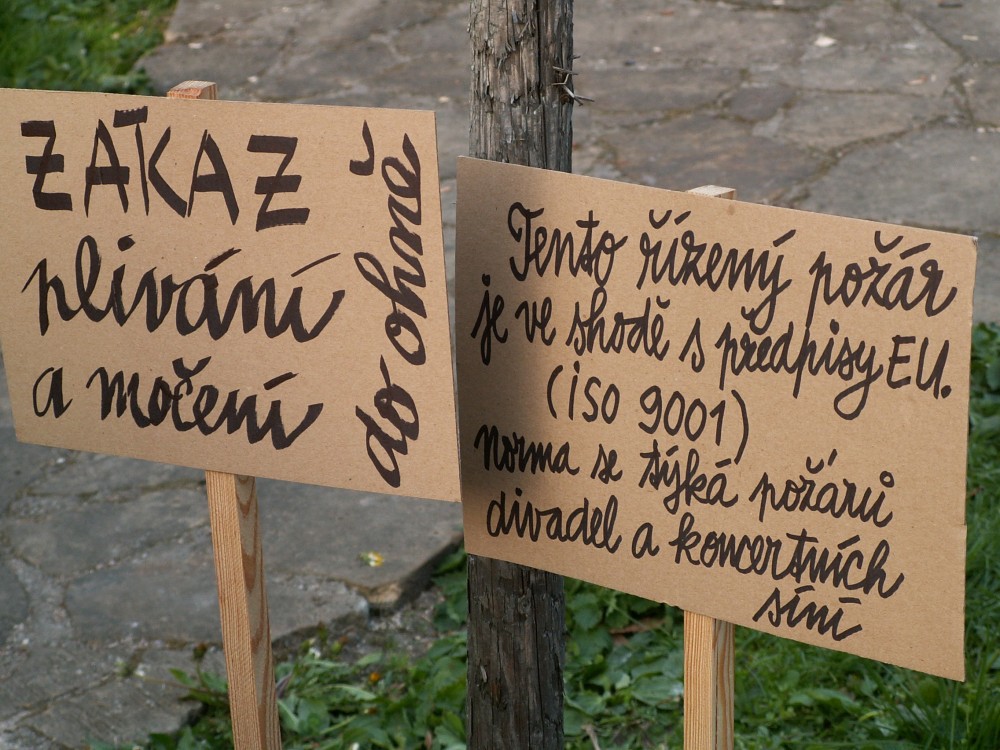 ZÁKAZ
plivání
a močení
do ohně
Tento řízený požár
je ve shodě s předpisy EU.
(iso 9001)
norma se týká požárů
divadel a koncertních
síní